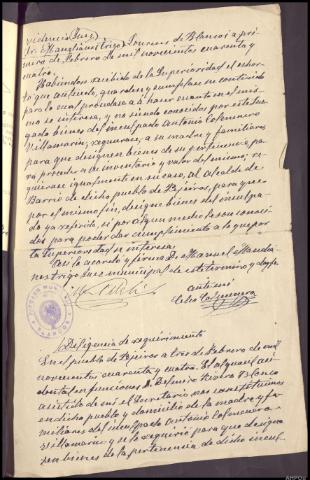 Providencia Juez
Sr. Mandianes Trigo. Lourenzá de Blancos a pri-
mero de Febrero de mil novecientos cuarenta y
cuatro.
Habiéndose recibido de la Superioridad el exhor-
to que antecede, guardese y cumplase su contenido
para lo cual procédase a hacer cuanto en el mis-
mo se interesa, y no siendo conocidos por este Juz-
gado bienes del inculpado Antonio Colmenero
Villamarín, requierase, a su madre y familiares
para que designen bienes de su pertenencia, pa-
ra proceder a su inventario y valor del mismo; re-
quierase igualmente en su caso, al Alcalde de
Barrio de dicho pueblo de Pejeiros, para que
por el mismo fin, designe bienes del inculpa-
do ya referido, si por algun medio le son conoci-
dos para poder dar cumplimiento a lo que por
la Superioridad se interesa.
Así lo acordó y firma D. Manuel Mandia-
nes Trigo Juez municipal de este término y doy fe
Ante mi
Celso Colmenero
Diligencia de requerimiento
En el pueblo de Pejeiros a tres de Febrero de mil
novecientos cuarenta y cuatro. El alguacil
en funciones D.
asistido de mi el Secretario nos constituimos
en dicho pueblo y domicilio de la madre y fa-
miliares del inculpado Antonio Colmenero
Villamarín y se le requirió para que designa-
sen bienes de la pertenencia de dicho incul-
AHPOU